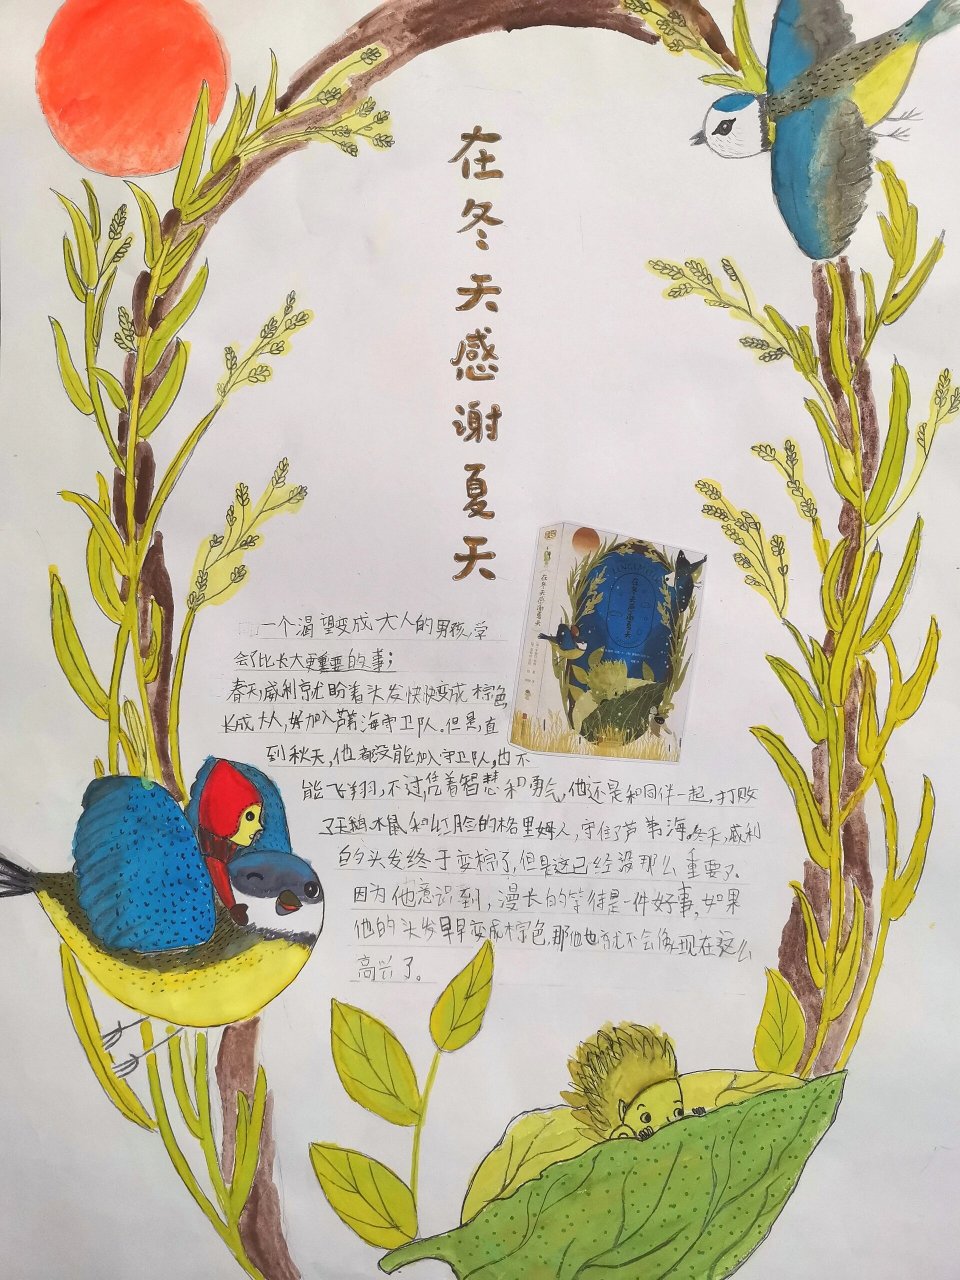 在冬天感谢夏天
一个渴望变成大人的男孩,学
会了比长大更重要的事;
春天,威利就盼着头发快快变成棕色,
长成大人,好加入芦苇海守卫队。但是,直
到秋天,他都没能加入守卫队,也不
能飞翔,不过,凭着智慧和勇气,他还是和同伴一起,打败
了天鹅、木鼠和红脸的格里姆人,守住了芦苇海。冬天,威利
的头发终于变棕了,但是这已经没那么重要了。
因为他意识到,漫长的等待是一件好事,如果
他的头发早早变成棕色,那他也就不会像现在这么
高兴了。
在冬天感谢夏天
在冬天感谢夏天